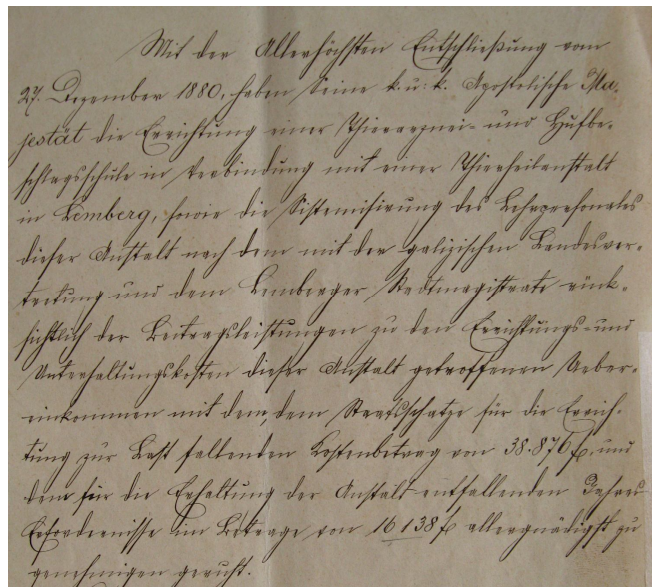 Mit der Allerhöchsten Entschließung vom
27. Dezember 1880, haben Seine k. u. k. Apostolische Ma-
jestät die Errichtung einer Thierarznei- und Hufbe-
schlagsschule in Verbindung mit einer Thierheilanstalt
in Lemberg, sowie die Sistemisirung des Lehrpersonales
dieser Anstalt nach dem mit der galizischen Landesver-
tretung und dem Lemberger Stadtmagistrate rück-
sichtlich der Beitragsleistungen zu den Errichtungs- und
Unterhaltungskosten dieser Anstalt getroffenen Ueber-
einkommen mit dem, dem Staatsschatze für die Errich-
tung zur Last fallenden Kostenbetrag von 38.876 f, und
dem für die Erhaltung der Anstalt entfallenden Jahres
Erfordernisse im Betrage von 16138 f allergnädigst zu
genehmigen geruht.